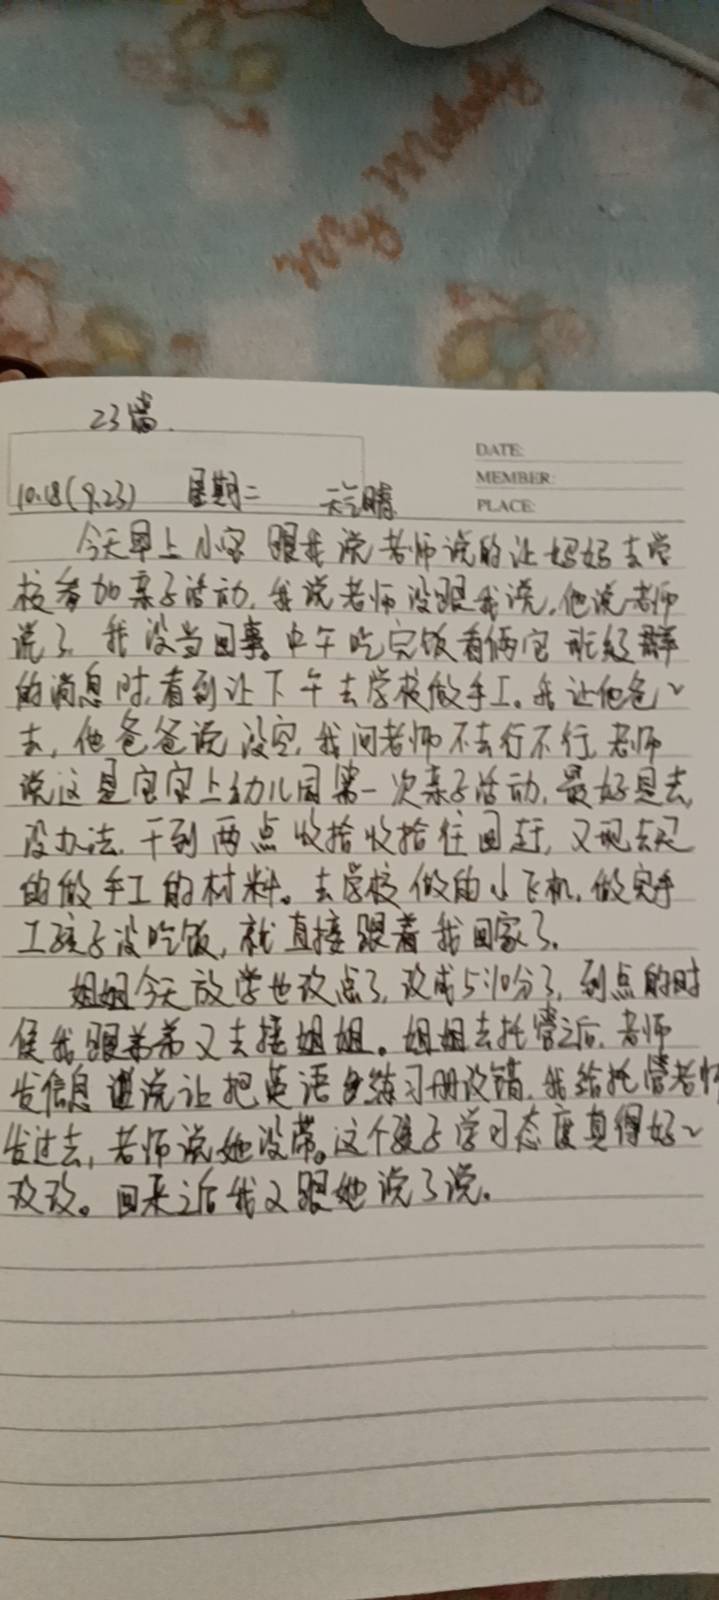 My Melody
23篇.
DATE:
MEMBER:
PLACE:
10.18(9.23) 星期二 天气晴
今天早上小宝跟我说老师说的让妈妈去学
校参加亲子活动,我说老师没跟我说,他说老师
说了,我没当回事。中午吃完饭看俩宝班级群
的消息时,看到让下午去学校做手工。我让他爸~
去,他爸爸说没空,我问老师不去行不行,老师
说这是宝宝上幼儿园第一次亲子活动,最好是去,
没办法,干到两点收拾收拾往回赶,又现去买
的做手工的材料。去学校做的小飞机,做完手
工孩子没吃饭,就直接跟着我回家了。
姐姐今天放学也改点了,改成5:10分了,到点的时
侯我跟弟弟又去接姐姐。姐姐去托管之后,老师
发信息说让把英语练习册改错,我给托管老师
发过去,老师说她没带。这个孩子学习态度真得好~
改改。回来之后我又跟她说了说。